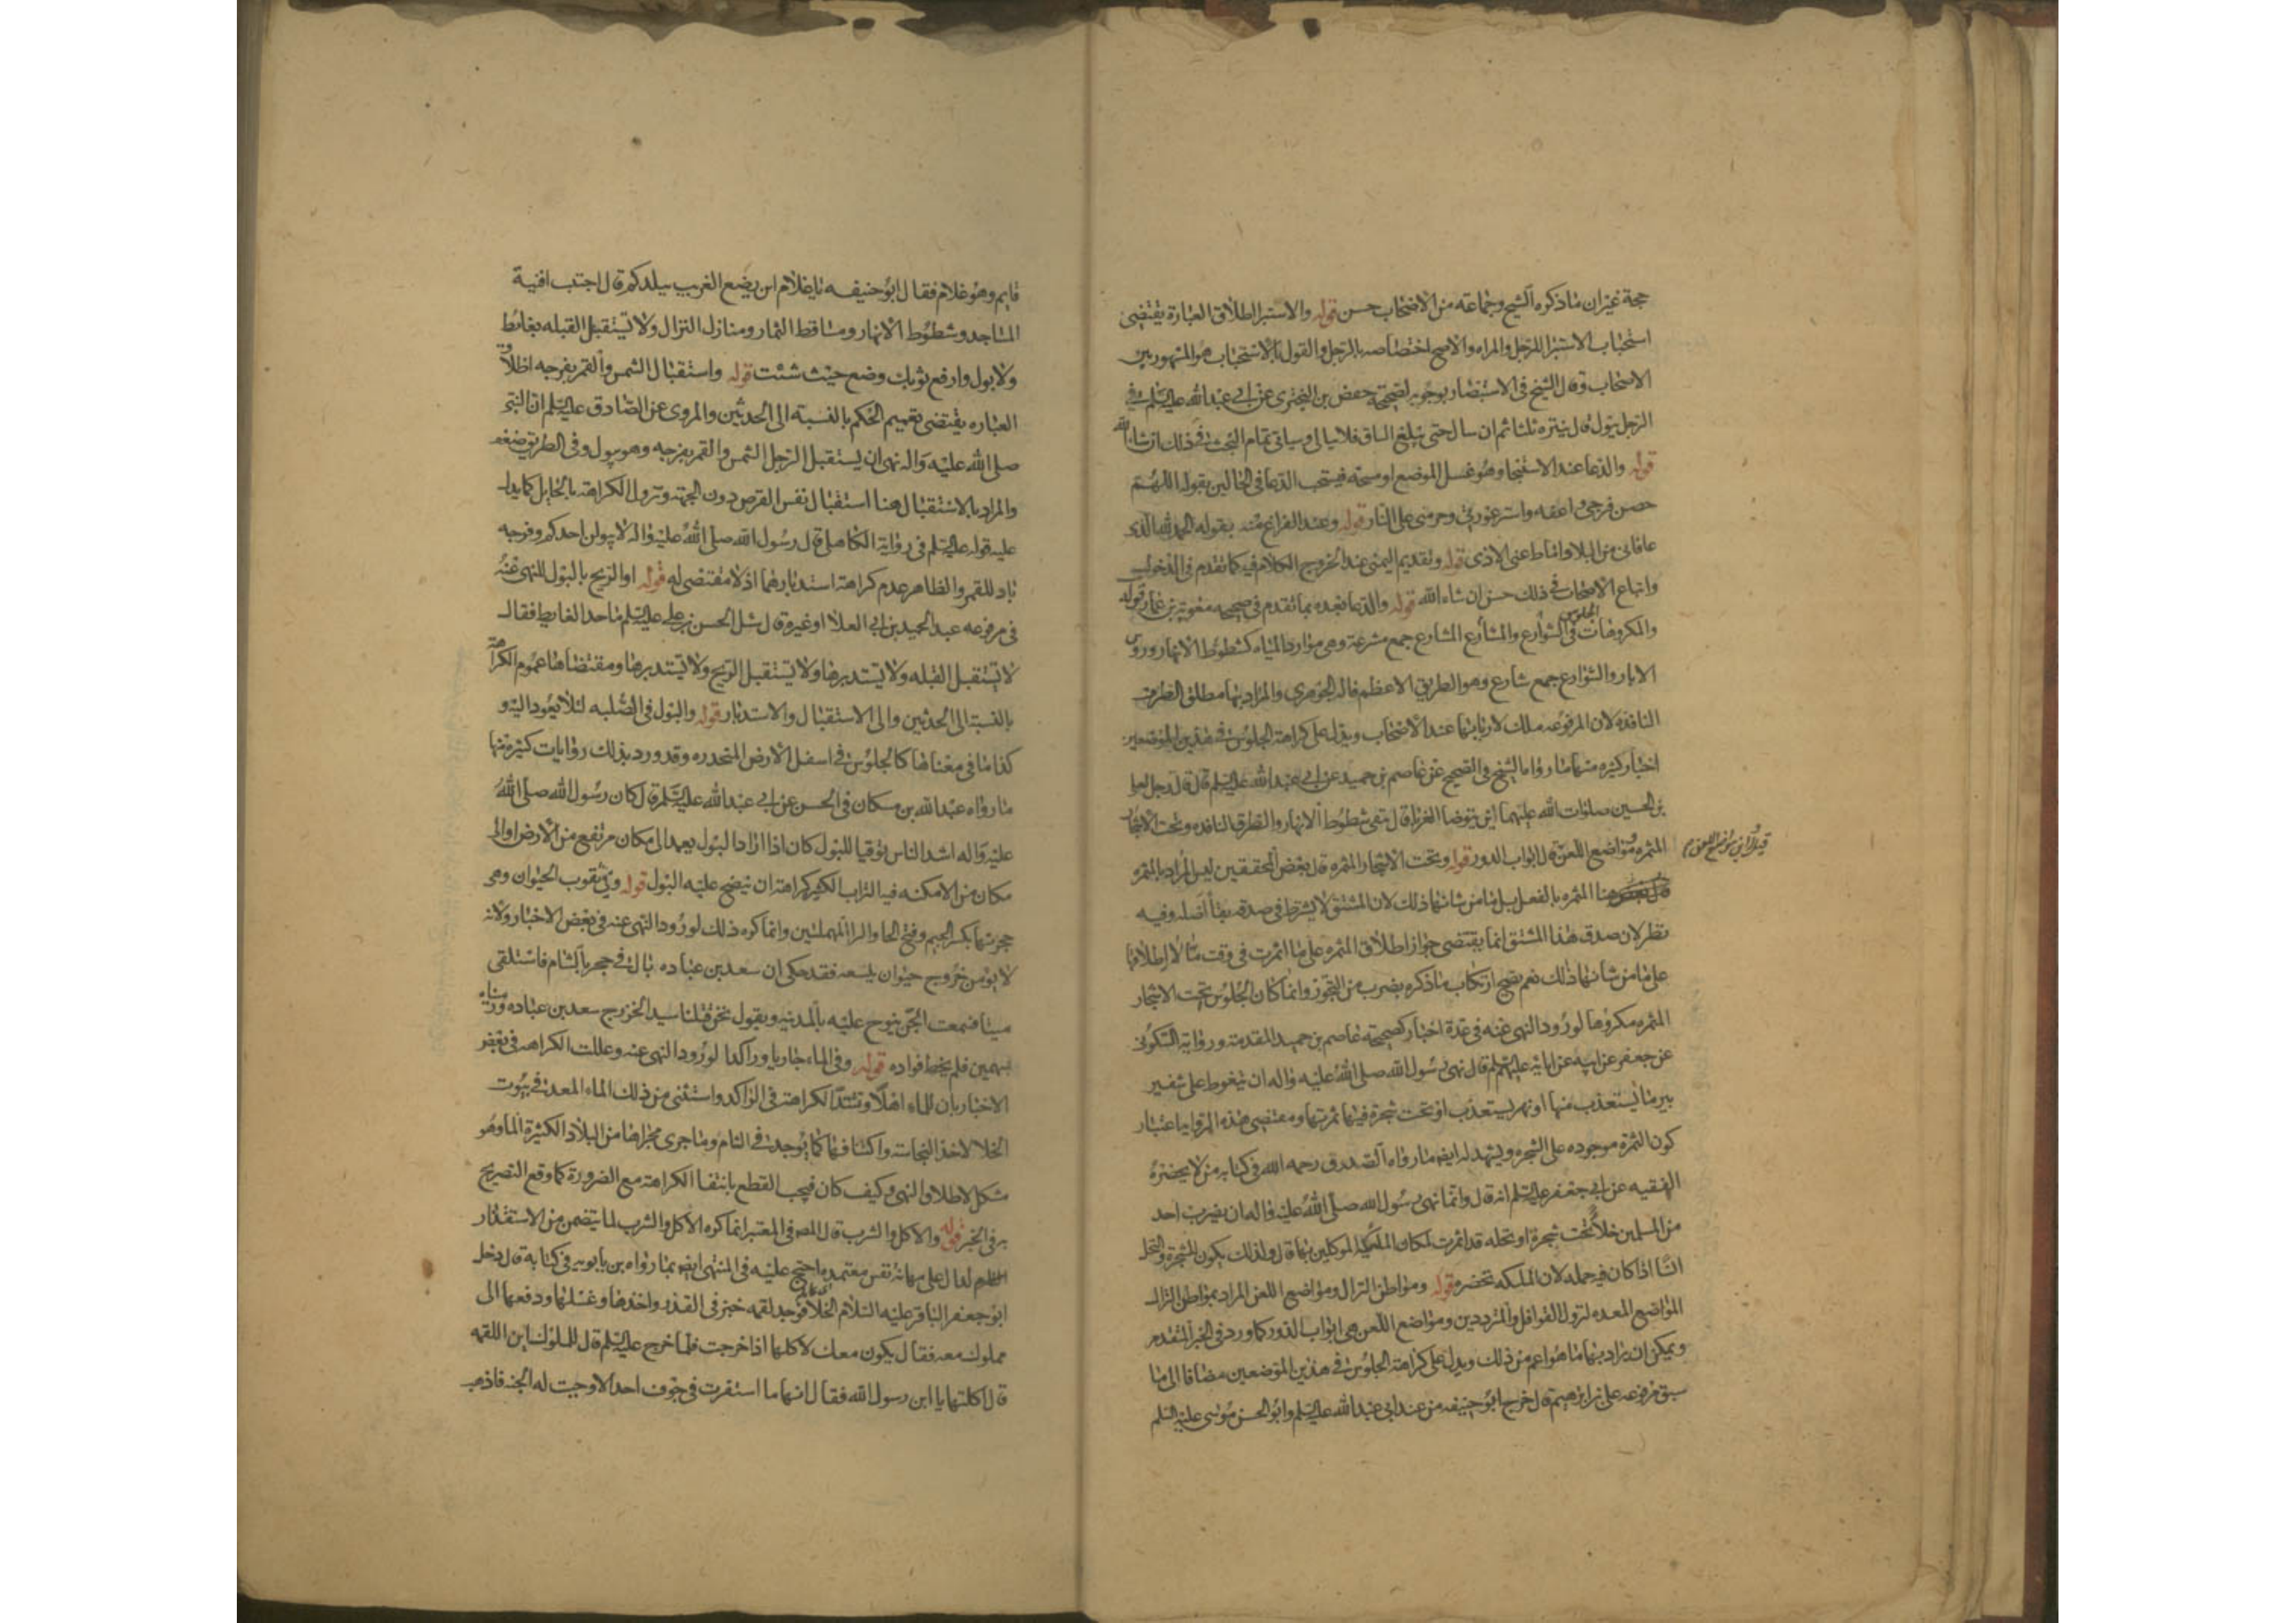 حجة غير ان ما ذكره الشيخ وجماعة من الاصحاب حسن قوله والاستبرا اطلاق العبارة يقتضى
استحباب الاستبرا للرجل والمراه والاصح اختصاصه بالرجل والقول بالاستحباب هو المشهور بين
الاصحاب وقال الشيخ فى الاستبصار بوجوبه لصحيحة حفص بن البخترى عن ابى عبد الله عليه السلم فى
الرجل يبول قال ينتره ثلثا ثم ان سال حتى يبلغ الساق فلا يبالى وسياتى تمام البحث فى ذلك ان شا الله
قوله والدعا عند الاستنجا وهو غسل الموضع او مسحه فيستحب الدعا فى الحالين بقوله اللهم
حصن فرجى واعفه واستر عورتى وحرمنى على النار قوله وعند الفراغ منه بقوله الحمد لله الذى
عافانى من البلا واماط عنى الاذى قوله وتقديم اليمنى عند الخروج الكلام فيه كما تقدم فى الدخول
واتباع الاصحاب فى ذلك حسن ان شاء الله قوله والدعا بعده بما تقدم فى صحيحه معوية بن عمار قوله
والمكروهات الجلوس فى الشوارع والمشارع المشارع جمع مشرعة وهى موارد المياه كشطوط الانهار وروس
الابار والشوارع جمع شارع وهو الطريق الاعظم قاله الجوهرى والمراد بها مطلق الطرق
النافذه لان المرفوعه ملك لاربابها عند الاصحاب ويدل على كراهة الجلوس فى هذين الموضعين
اخبار كثيره منها ما رواه الشيخ فى الصحيح عن عاصم بن حميد عن ابى عبد الله عليه السلم قال قال رجل لعلى
بن الحسين صلوات الله عليهما اين يتوضا الغربا قال تتقى شطوط الانهار والطرق النافذه وتحت الاشجار
المثمره ومواضع اللعن قال ابواب الدور قوله وتحت الاشجار المثمره قال بعض المحققين ليس المراد بالمثمره
قيل له اين مواضع اللعن
هنا المثمره بالفعل بل ما من شانها ذلك لان المشتق لا يشترط فى صدقه بقا اصله وفيه
نظر لان صدق هذا المشتق انما يقتضى جواز اطلاق المثمره على ما اثمرت فى وقت ما لا اطلاقها
على ما من شانها ذلك نعم يصح ارتكاب ما ذكره بضرب من التجوز وانما كان الجلوس تحت الاشجار
المثمره مكروها لورود النهى عنه فى عدة اخبار كصحيحة عاصم بن حميد المتقدمة ورواية السكونى
عن جعفر عن ابيه عن ابائه عليهم السلم قال نهى رسول الله صلى الله عليه واله ان يتغوط على شفير
بير ماء يستعذب منها او نهر يستعذب او تحت شجرة فيها ثمرتها ومقتضى هذه الرواية اعتبار
كون الثمرة موجوده على الشجره ويشهد له ايضا ما رواه الصدوق رحمه الله فى كتابه من لا يحضره
الفقيه عن ابى جعفر عليه السلم انه قال وانما نهى رسول الله صلى الله عليه واله ان يضرب احد
من المسلمين خلاء تحت شجرة او نخله قد اثمرت لمكان الملئكة الموكلين بها قال ولذلك يكون للشجرة والنخل
انسا اذا كان فيه حمله لان الملئكه تحضره قوله ومواطن النزال ومواضع اللعن المراد بمواطن النزال
المواضع المعده لنزول القوافل والمترددين ومواضع اللعن هى ابواب الدور كما ورد فى الخبر المتقدم
ويمكن ان يراد بها ما هو اعم من ذلك ويدل على كراهة الجلوس فى هذين الموضعين مضافا الى ما
سبق مرفوعه على بن ابرهيم قال خرج ابو حنيفه من عند ابى عبد الله عليه السلم وابو الحسن موسى عليه السلم
قايم وهو غلام فقال ابو حنيفه يا غلام اين يضع الغريب ببلدكم قال اجتنب افنية
المساجد وشطوط الانهار ومساقط الثمار ومنازل النزال ولا تستقبل القبله بغائط
ولا بول وارفع ثوبك وضع حيث شئت قوله واستقبال الشمس والقمر بفرجه اطلاق
العباره يقتضى تعميم الحكم بالنسبة الى الحدثين والمروى عن الصادق عليه السلم ان النبى
صلى الله عليه واله نهى ان يستقبل الرجل الشمس والقمر بفرجه وهو يبول وفى الطريق ضعف
والمراد بالاستقبال هنا استقبال نفس القرص دون الجهة وتزول الكراهة بالحايل كما يدل
عليه قوله عليه السلم فى رواية الكاهلى قال رسول الله صلى الله عليه واله لا يبولن احدكم وفرجه
باد للقمر والظاهر عدم كراهة استدبارهما اذ لا مقتضى له قوله او الريح بالبول للنهى عنه
فى مرفوعه عبد الحميد بن ابى العلا او غيره قال سئل الحسن بن على عليه السلم ما حد الغايط فقال
لا تستقبل القبله ولا تستدبرها ولا تستقبل الريح ولا تستدبرها ومقتضاها عموم الكراهة
بالنسبة الى الحدثين والى الاستقبال والاستدبار قوله والبول فى الصلبه لئلا يعود اليه و
كذا ما فى معناها كالجلوس فى اسفل الارض المنحدره وقد ورد بذلك روايات كثيرة منها
ما رواه عبد الله بن مسكان فى الحسن عن ابى عبد الله عليه السلم قال كان رسول الله صلى الله
عليه واله اشد الناس توقيا للبول كان اذا اراد البول يعمد الى مكان مرتفع من الارض او الى
مكان من الامكنه فيه التراب الكثير كراهة ان ينضح عليه البول قوله وفى ثقوب الحيوان وهى
جحرتها بكسر الجيم وفتح الحا والرا المهملتين وانما كره ذلك لورود النهى عنه فى بعض الاخبار ولانه
لا يومن خروج حيوان يلسعه فقد حكى ان سعد بن عباده بال فى جحر بالشام فاستلقى
ميتا فسمعت الجن ينوح عليه بالمدينه ويقول نحن قتلنا سيد الخزرج سعد بن عباده ورميناه
بسهمين فلم يخط فواده قوله وفى الماء جاريا وراكدا لورود النهى عنه وعللت الكراهه فى بعض
الاخبار بان للماء اهلا وتشتد الكراهة فى الراكد واستثنى من ذلك الماء المعد فى بيوت
الخلا لاخذ النجاسة واكتنافها كما يوجد فى الشام وما جرى مجراها من البلاد الكثيرة الما وهو
مشكل لاطلاق النهى وكيف كان فيجب القطع بانتفا الكراهة مع الضرورة كما وقع التصريح
به فى الخبر قوله والاكل والشرب قال المص فى المعتبر انما كره الاكل والشرب لما يتضمن من الاستقذار
الدال على مهانة نفس معتمده واحتج عليه فى المنتهى ايضا بما رواه بن بابويه فى كتابه قال دخل
ابو جعفر الباقر عليه السلام الخلا فوجد لقمه خبز فى القذر واخذها وغسلها ودفعها الى
مملوك معه فقال يكون معك لاكلها اذا خرجت فلما خرج عليه السلم قال للملوك اين اللقمه
قال اكلتها يا ابن رسول الله فقال انها ما استقرت فى جوف احد الا وجبت له الجنه فاذهب